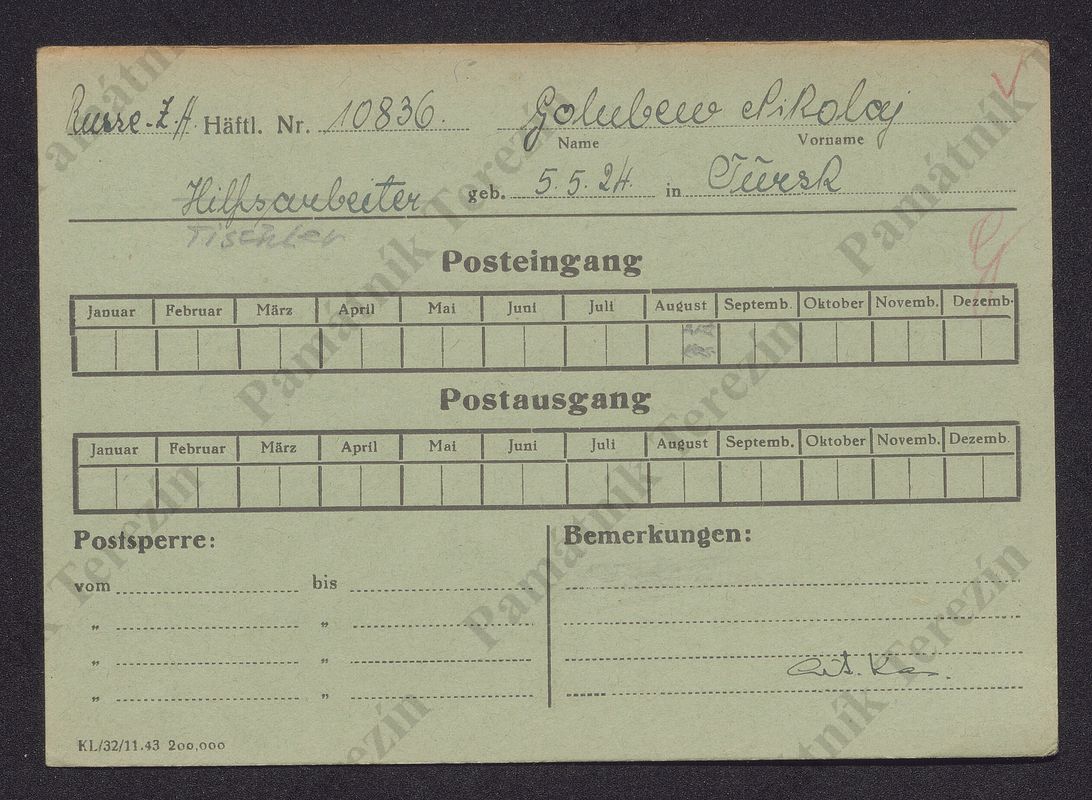 Russe-Z.A. Häftl. Nr. 10836. Golubew Nikolaj
Name Vorname
Hilfsarbeiter geb. 5.5.24. in Tursk
Tischler
Posteingang
Januar Februar März April Mai Juni Juli August Septemb. Oktober Novemb. Dezemb.
Postausgang
Januar Februar März April Mai Juni Juli August Septemb. Oktober Novemb. Dezemb.
Postsperre: Bemerkungen:
vom bis
„ „
„ „
„ „
KL/32/11.43 200,000
Památník Terezín